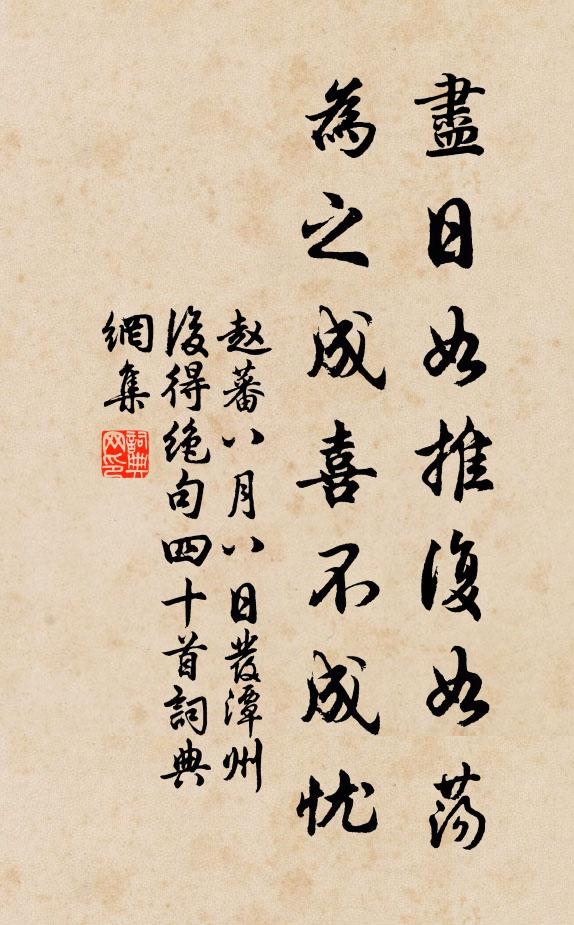 盡日如推復如蕩
為之成喜不成忧
赵蕃八月八日發潭州
後得絶句四十首詞典
網集
詞典
网印